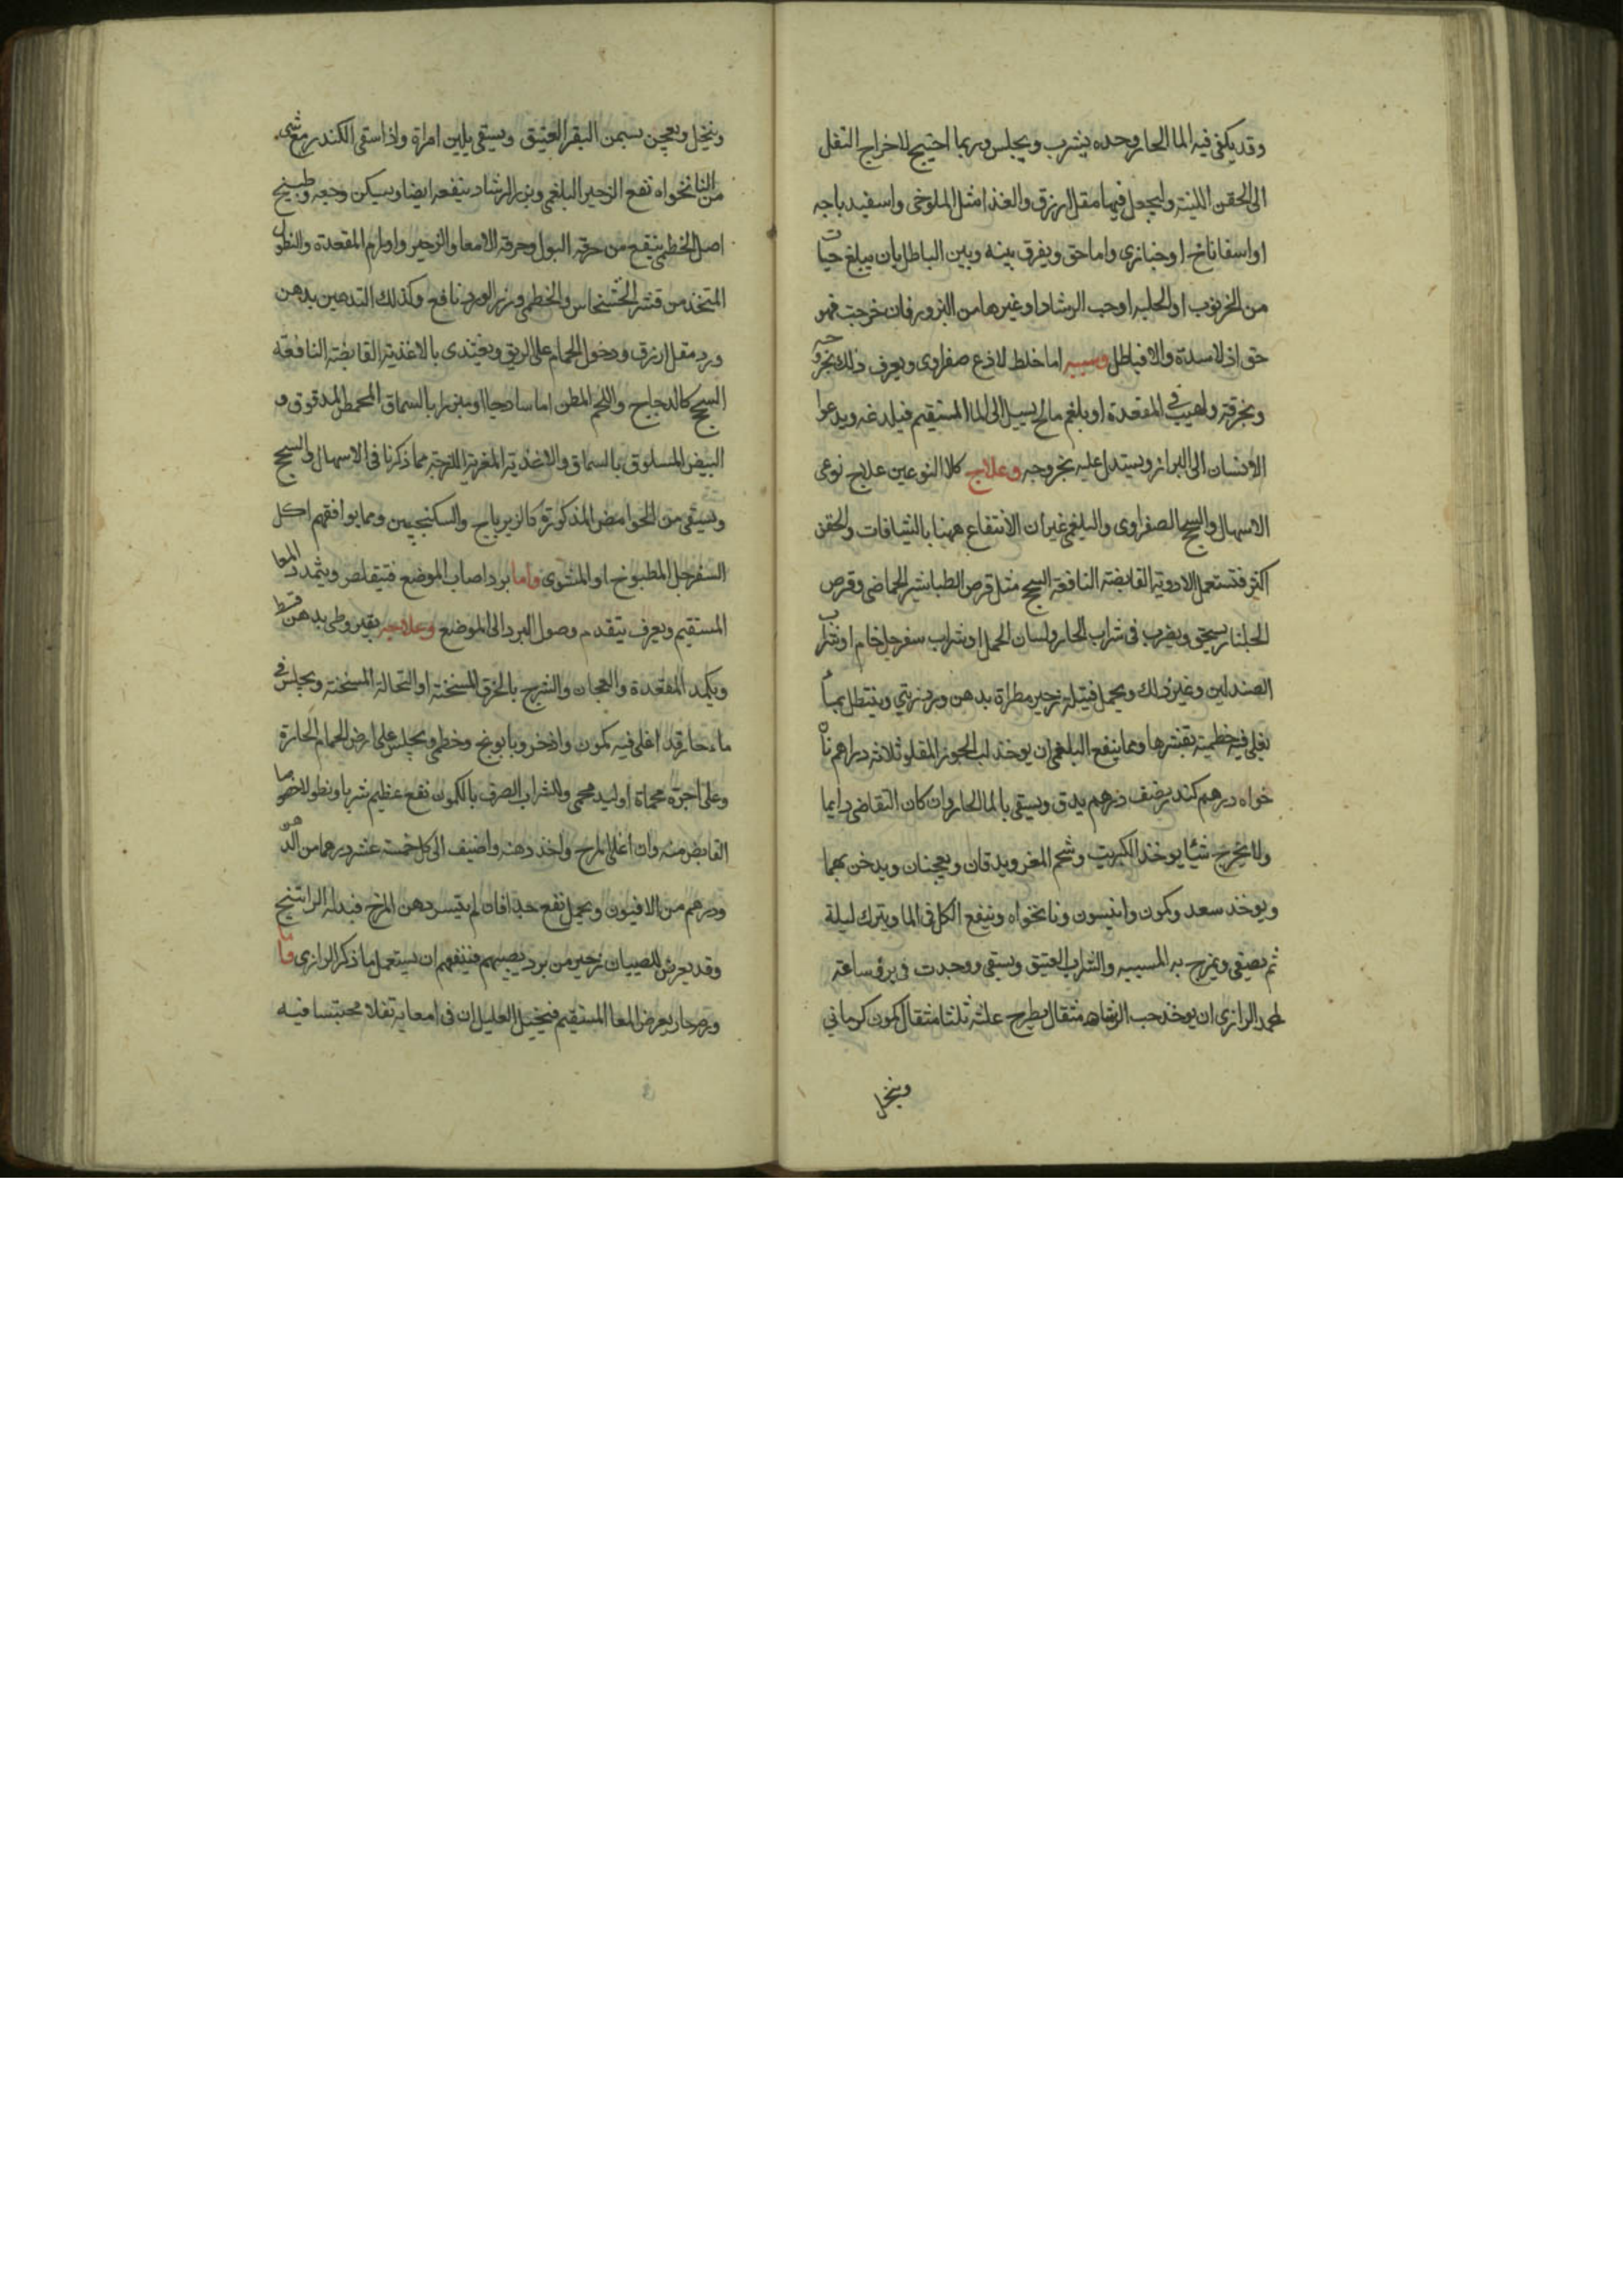 وقد يكفى فيه الما الحار وحده يشرب ويجلس وربما احتيج لاخراج الثفل
الى الحقن اللينة وليجعل فيها مقل ازرق والغذا مثل الملوخى واسفيدباجه
او اسفاناخ او خبازى واما حق ويفرق بينه وبين الباطل بان يبلغ حبات
من الخرنوب او الحلبه او حب الرشاد او غيرها من البزور فان خرجت فهو
حق اذ لا سدة والا فباطل وسببه اما خلط لاذع صفراوى ويعرف ذلك بخروجه
وبحرقة ولهيب فى المقعدة او بلغم مالح يسيل الى المعا المستقيم فيلدغه ويدعوا
الانسان الى البراز ويستدل عليه بخروجه وعلاج كلا النوعين علاج نوعى
الاسهال والسحج الصفراوى والبلغمى غير ان الانتفاع ههنا بالشيافات والحقن
اكثر فتستعمل الادوية القابضة النافعة السحج مثل قرص الطباشير الحماضى وقرص
الجلنار يسحق ويضرب فى شراب الحار ولسان الحمل او شراب سفرجل خام او شراب
الصندلين وغير ذلك ويحمل فتيلة زحير مطراة بدهن ورد زيتي وينتطل بماء
يغلى فيه خطمية بقشرها ومما ينفع البلغمى ان يوخذ لب الجوز المقلو ثلاثة دراهم نان
خواه درهم كندر نصف درهم يدق ويسقى بالما الحار وان كان التقاضى دايما
ولا يخرج شيئا يوخذ الكبريت وشحم المعز ويدقان ويعجنان ويدخن بهما
ويوخذ سعد وكمون وانيسون ونانخواه وينقع الكل فى الما ويترك ليلة
ثم يصفى ويمزج به الميبه والشراب العتيق ويسقى ووجدت فى برؤ ساعة
لمحمد الرازى ان يوخذ حب الرشاد مثقال يطرح عليه ثلثا مثقال كمون كرماني
وينخل
وينخل ويعجن بسمن البقر العتيق ويسقى بلبن امراة واذا سقى الكندر مع شىء
من النانخواه نفع الزحير البلغمى وبزر الرشاد ينفعه ايضا ويسكن وجعه وطبيخ
اصل الخطمى ينفع من حرقة البول وحرقة الامعا والزحير واورام المقعدة والنطول
المتخذ من قشر الخشخاش والخطمى وزر الورد نافع وكذلك التدهين بدهن
ورد مقل ازرق ودخول الحمام على الريق ويغتدى بالاغذية القابضة النافعة
السحج كالدجاج واللحم المطن اما ساذجا او مبزرا بالسماق المحمص المدقوق و
البيض المسلوق بالسماق والاغذية المغرية اللزجة مما ذكرنا فى الاسهال والسحج
ويسقى من الحوامض المذكورة كالزيرباج والسكنجبين ومما يوافقهم اكل
السفرجل المطبوخ او المشوى واما برد اصاب الموضع فيتقلص ويتمدد المعا
المستقيم ويعرف بتقدم وصول البرد الى الموضع وعلاجه بقيروطى بدهن قسط
ويكمد المقعدة والعجان والشرج بالخرق المسخنة او النخالة المسخنة ويجلس فى
ماء حار قد اغلى فيه كمون واذخر وبابونج وخطمى ويجلس على ارض الحمام الحارة
وعلى اجرة محماة او لبد محمى والشراب الصرف بالكمون نفع عظيم شربا ونطولا خصوصا
القابض منه وان اغلى المرخ واخذ دهنه واضيف الى كل خمسة عشر درهما من الدهن
ودرهم من الافيون ويحمل نفع جدا فان لم يتيسر دهن المرخ فبدله الراتنج
وقد يعرض للصبيان زحير من برد يصيبهم فينفعهم ان يستعمل ما ذكر الرازى واما
ورم حار يعرض للمعا المستقيم فيتخيل العليل ان فى امعايه ثفلا محتبسا فيه